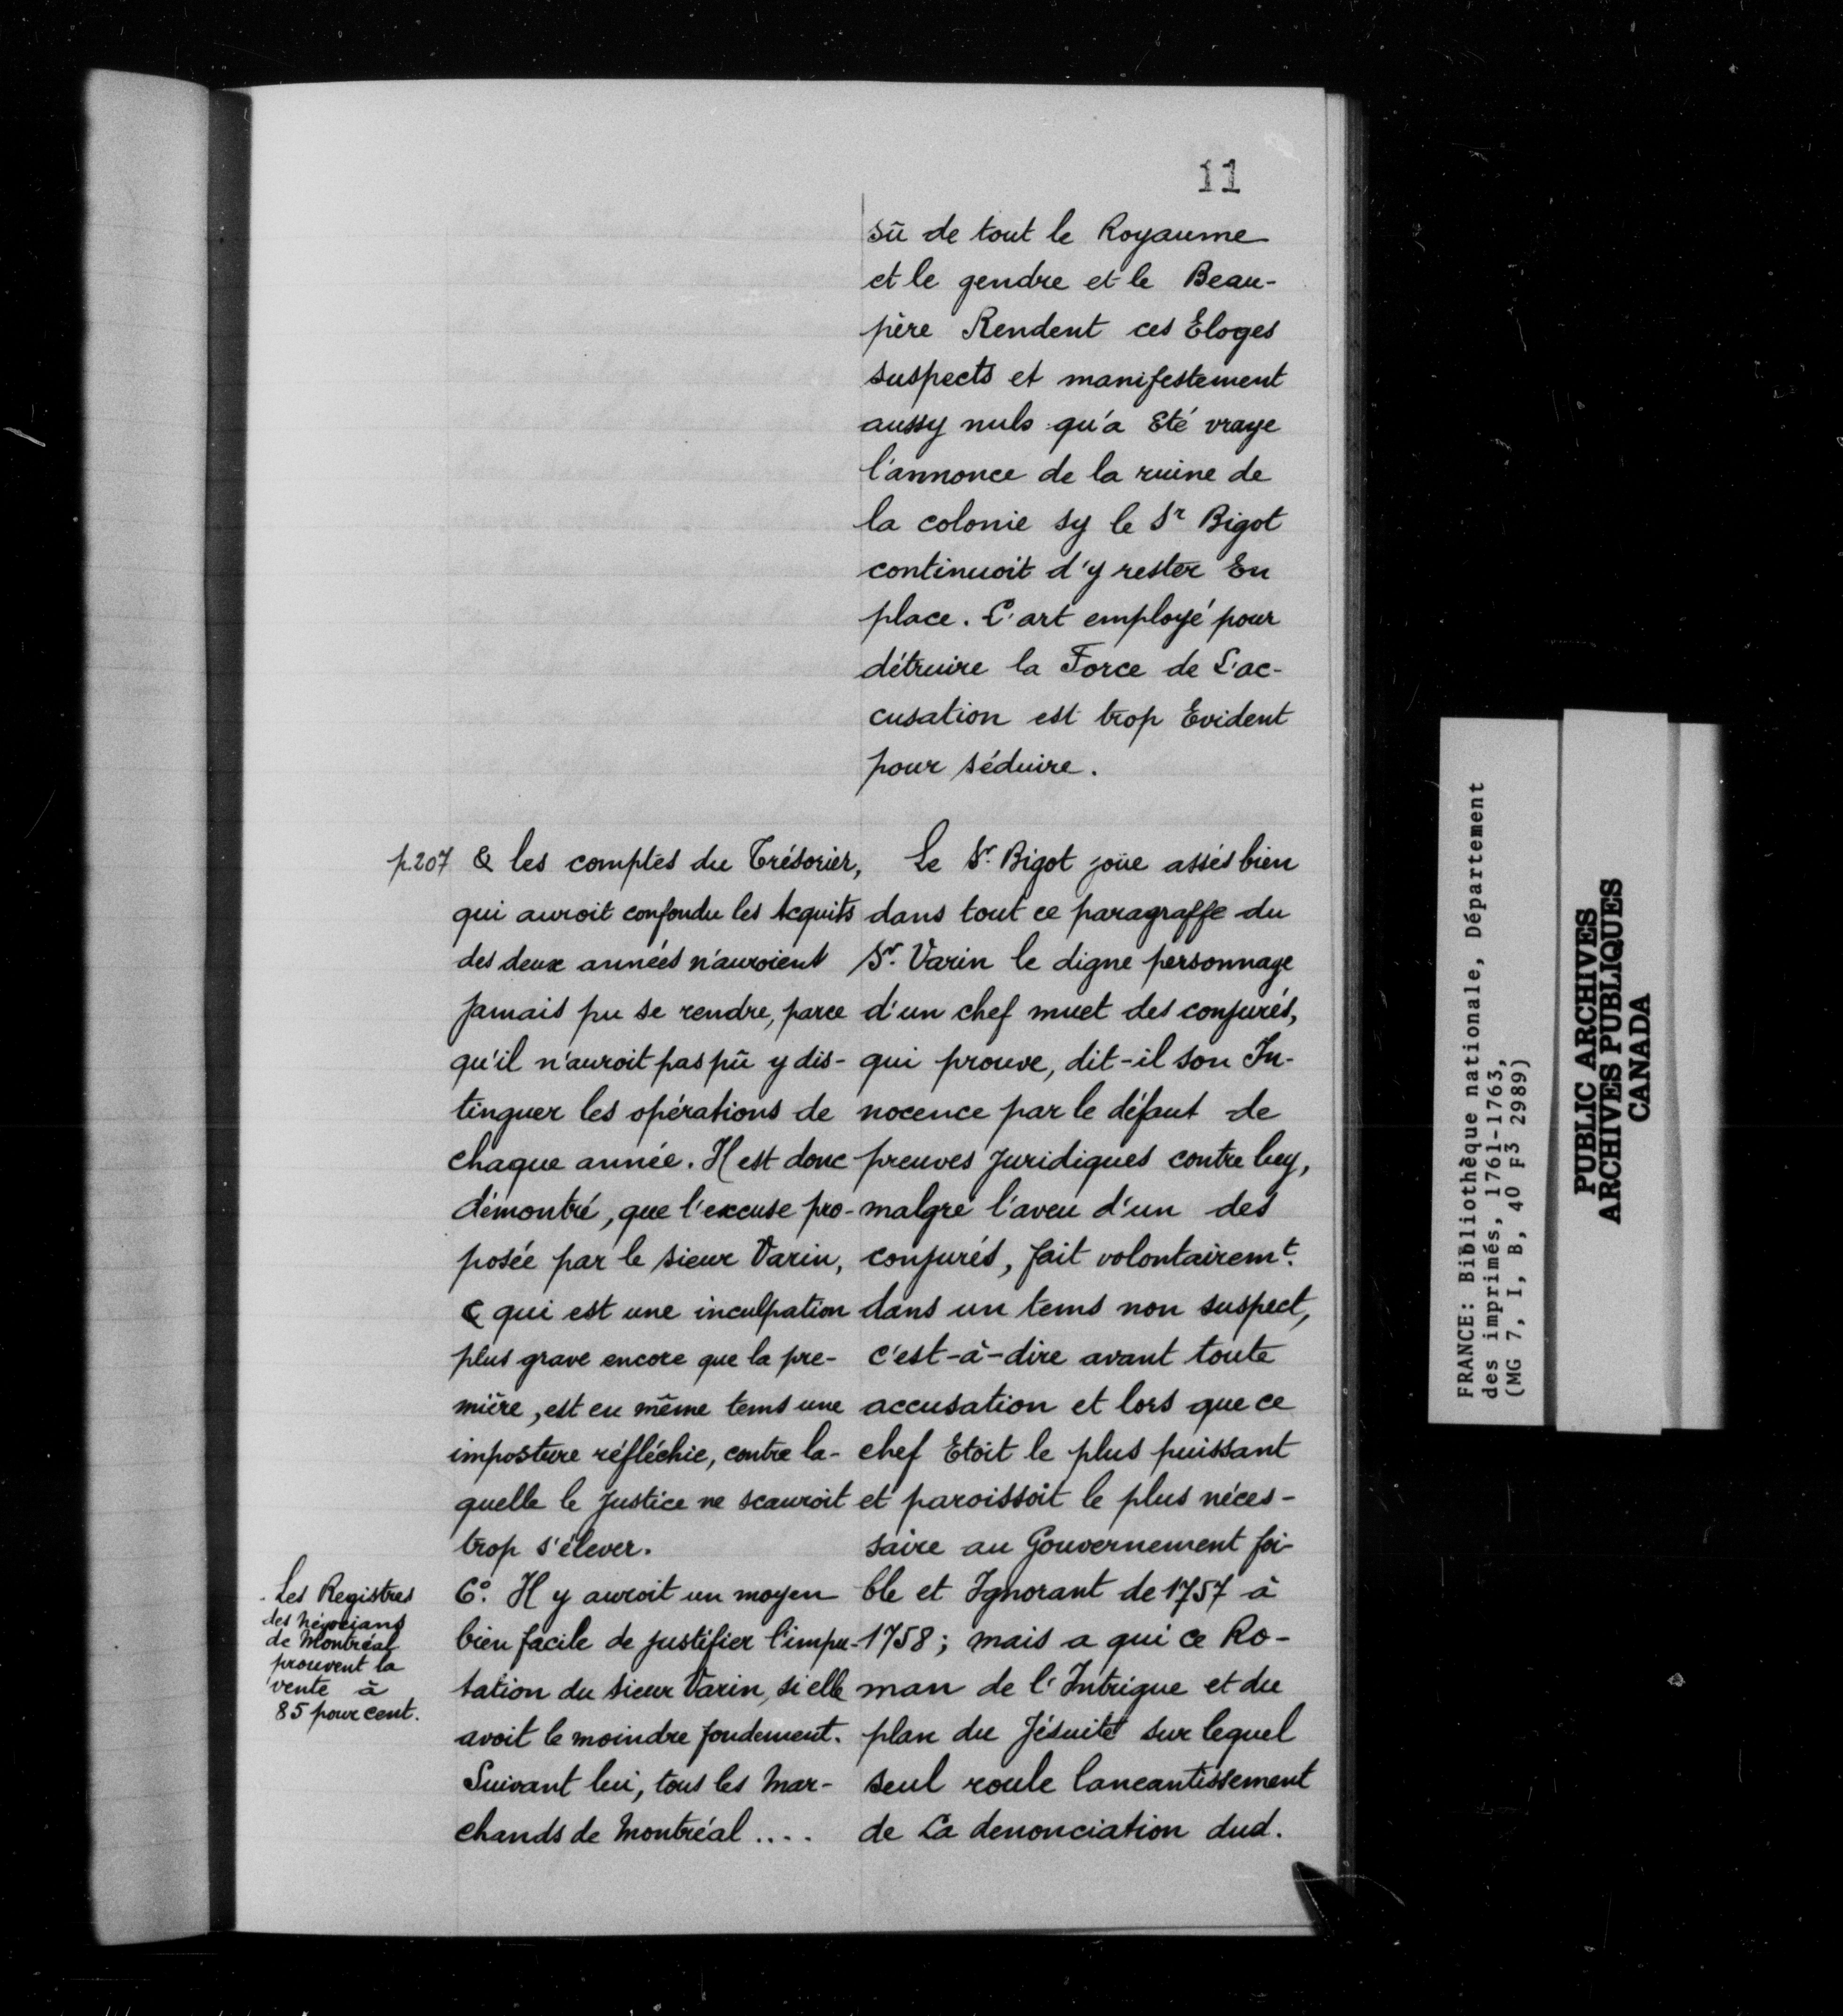 11
sû de tout le Royaume
et le gendre et le Beau-
père Rendent ces Eloges
suspects et manifestement
aussy nuls qu'a Eté vraye
l'annonce de la ruine de
la colonie sy le Sr Bigot
continuoit d'y rester En
place. L'art employé pour
détruire la Force de L'ac-
cusation est trop Evident
pour séduire.
p.207 & les comptes du Trésorier,
qui auroit confondu les Acquits
des deux années n'auroient
jamais pu se rendre, parce
qu'il n'auroit pas pû y dis-
tinguer les opérations de
chaque année. Il est donc
démontré, que l'excuse pro-
posée par le sieur Varin,
& qui est une inculpation
plus grave encore que la pre-
mière, est en même tems une
imposture réfléchie, contre la-
quelle le justice ne scauroit
trop s'élever.
Les Registres
des Négocians
de Montréal
prouvent la
vente à
85 pour cent.
6º. Il y auroit un moyen
bien facile de justifier l'impu-
tation du sieur Varin, si elle
avoit le moindre fondement.
Suivant lui, tous les Mar-
chands de Montréal ....
Le Sr. Bigot joüe assés bien
dans tout ce paragraffe du
Sr. Varin le digne personnage
d'un chef muet des conjurés,
qui prouve, dit-il son In-
nocence par le défaut de
preuves juridiques contre luy,
malgré l'aveu d'un des
conjurés, fait volontairemt.
dans un tems non suspect,
c'est-à-dire avant toute
accusation et lors que ce
chef Etoit le plus puissant
et paroissoit le plus néces-
saire au Gouvernement foi-
ble et Ignorant de 1757 à
1758; mais a qui ce Ro-
man de l'Intrigue et du
plan du Jésuite sur lequel
seul roule laneantissement
de La denonciation dud.
FRANCE: Bibliothèque nationale, Département
des imprimés, 1761-1763,
(MG 7, I, B, 40 F3 2989)
PUBLIC ARCHIVES
ARCHIVES PUBLIQUES
CANADA